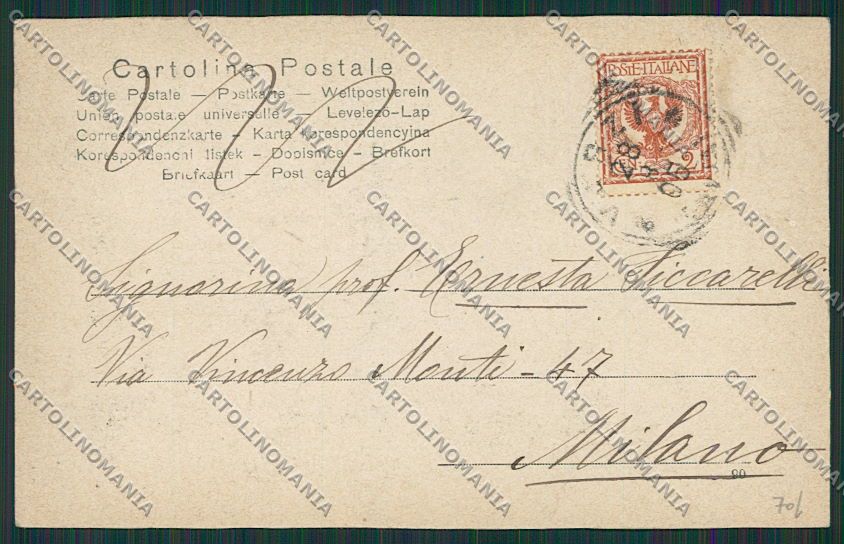 Cartolina Postale
Carte Postale — Postkarte — Weltpostverein
Union postale universelle — Levelező-Lap
Correspondenzkarte - Karta Korespondencyjna
Korespondencni listek - Dopisnice - Brefkort
Briefkaart — Post card
POSTE·ITALIANE
Signorina prof. Ernesta Ficcarelli
Via Vincenzo Monti - 47
Milano
90
701
CARTOLINOMANIA